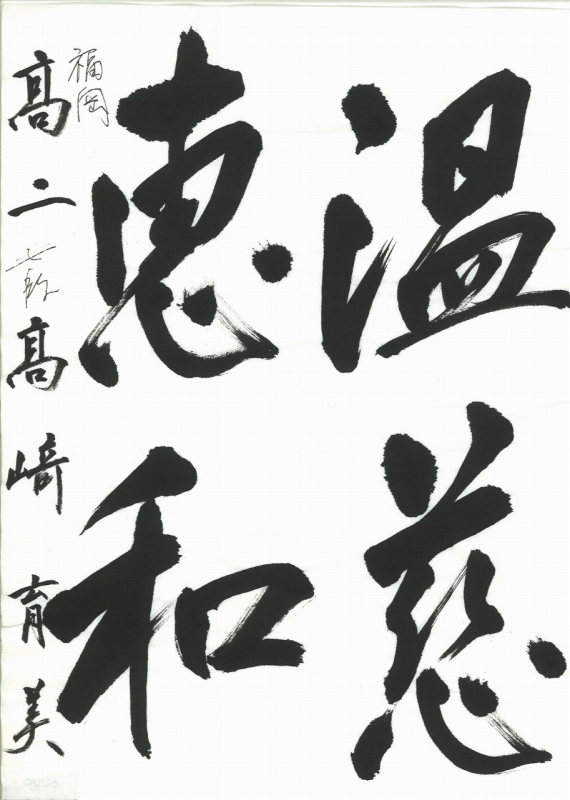 温慈
恵和
福岡
高二 七段 高﨑育美